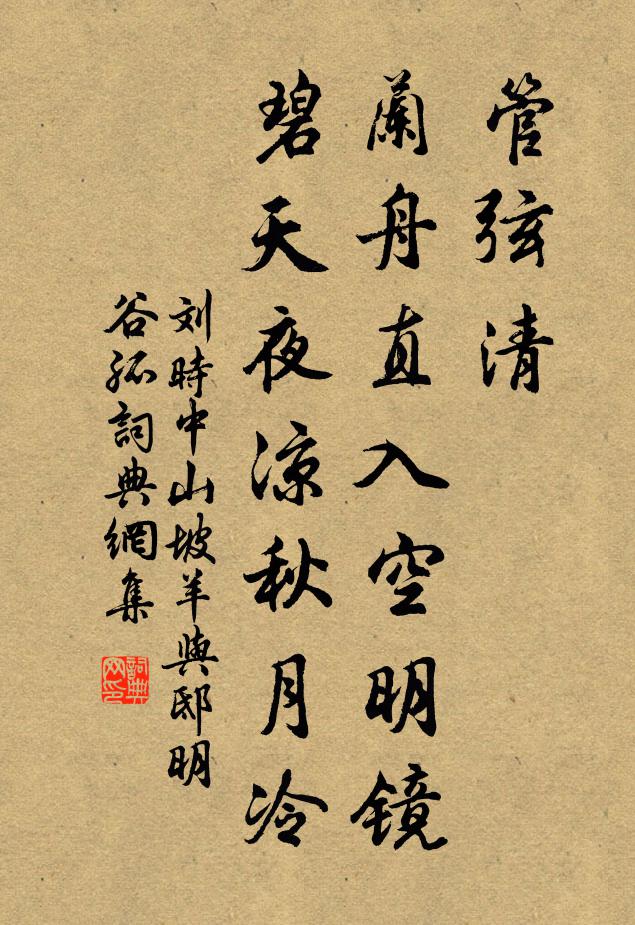 管弦清
蘭舟直入空明镜
碧天夜凉秋月冷
刘時中山坡羊與邸明
谷孤詞典網集
詞典
网印